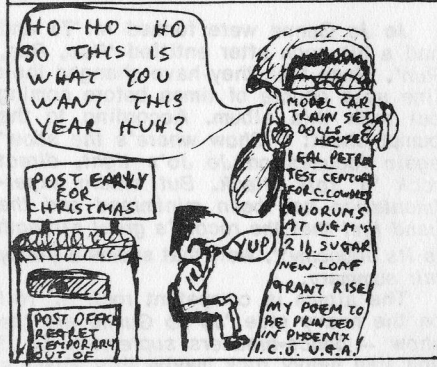 HO-HO HO
SO THIS IS
WHAT YOU
WANT THIS
YEAR HUH?
POST EARLY
FOR
CHRISTMAS
POST OFFIC
REGRET
TEMPORARY
OUT OF
YUP
MODEL CAR
TRAIN SET
DOLLS
HOUSE
1 GAL PETRO
TEST CENTUR
FOR CLOWNEY
QUORUMS
AT U.G.M.
2 lb. SUGAR
NEW LOAF
GRANT RISE
MY POEM TO
BE PRINTED
PHOENIX
I.C.U. U.G.A.